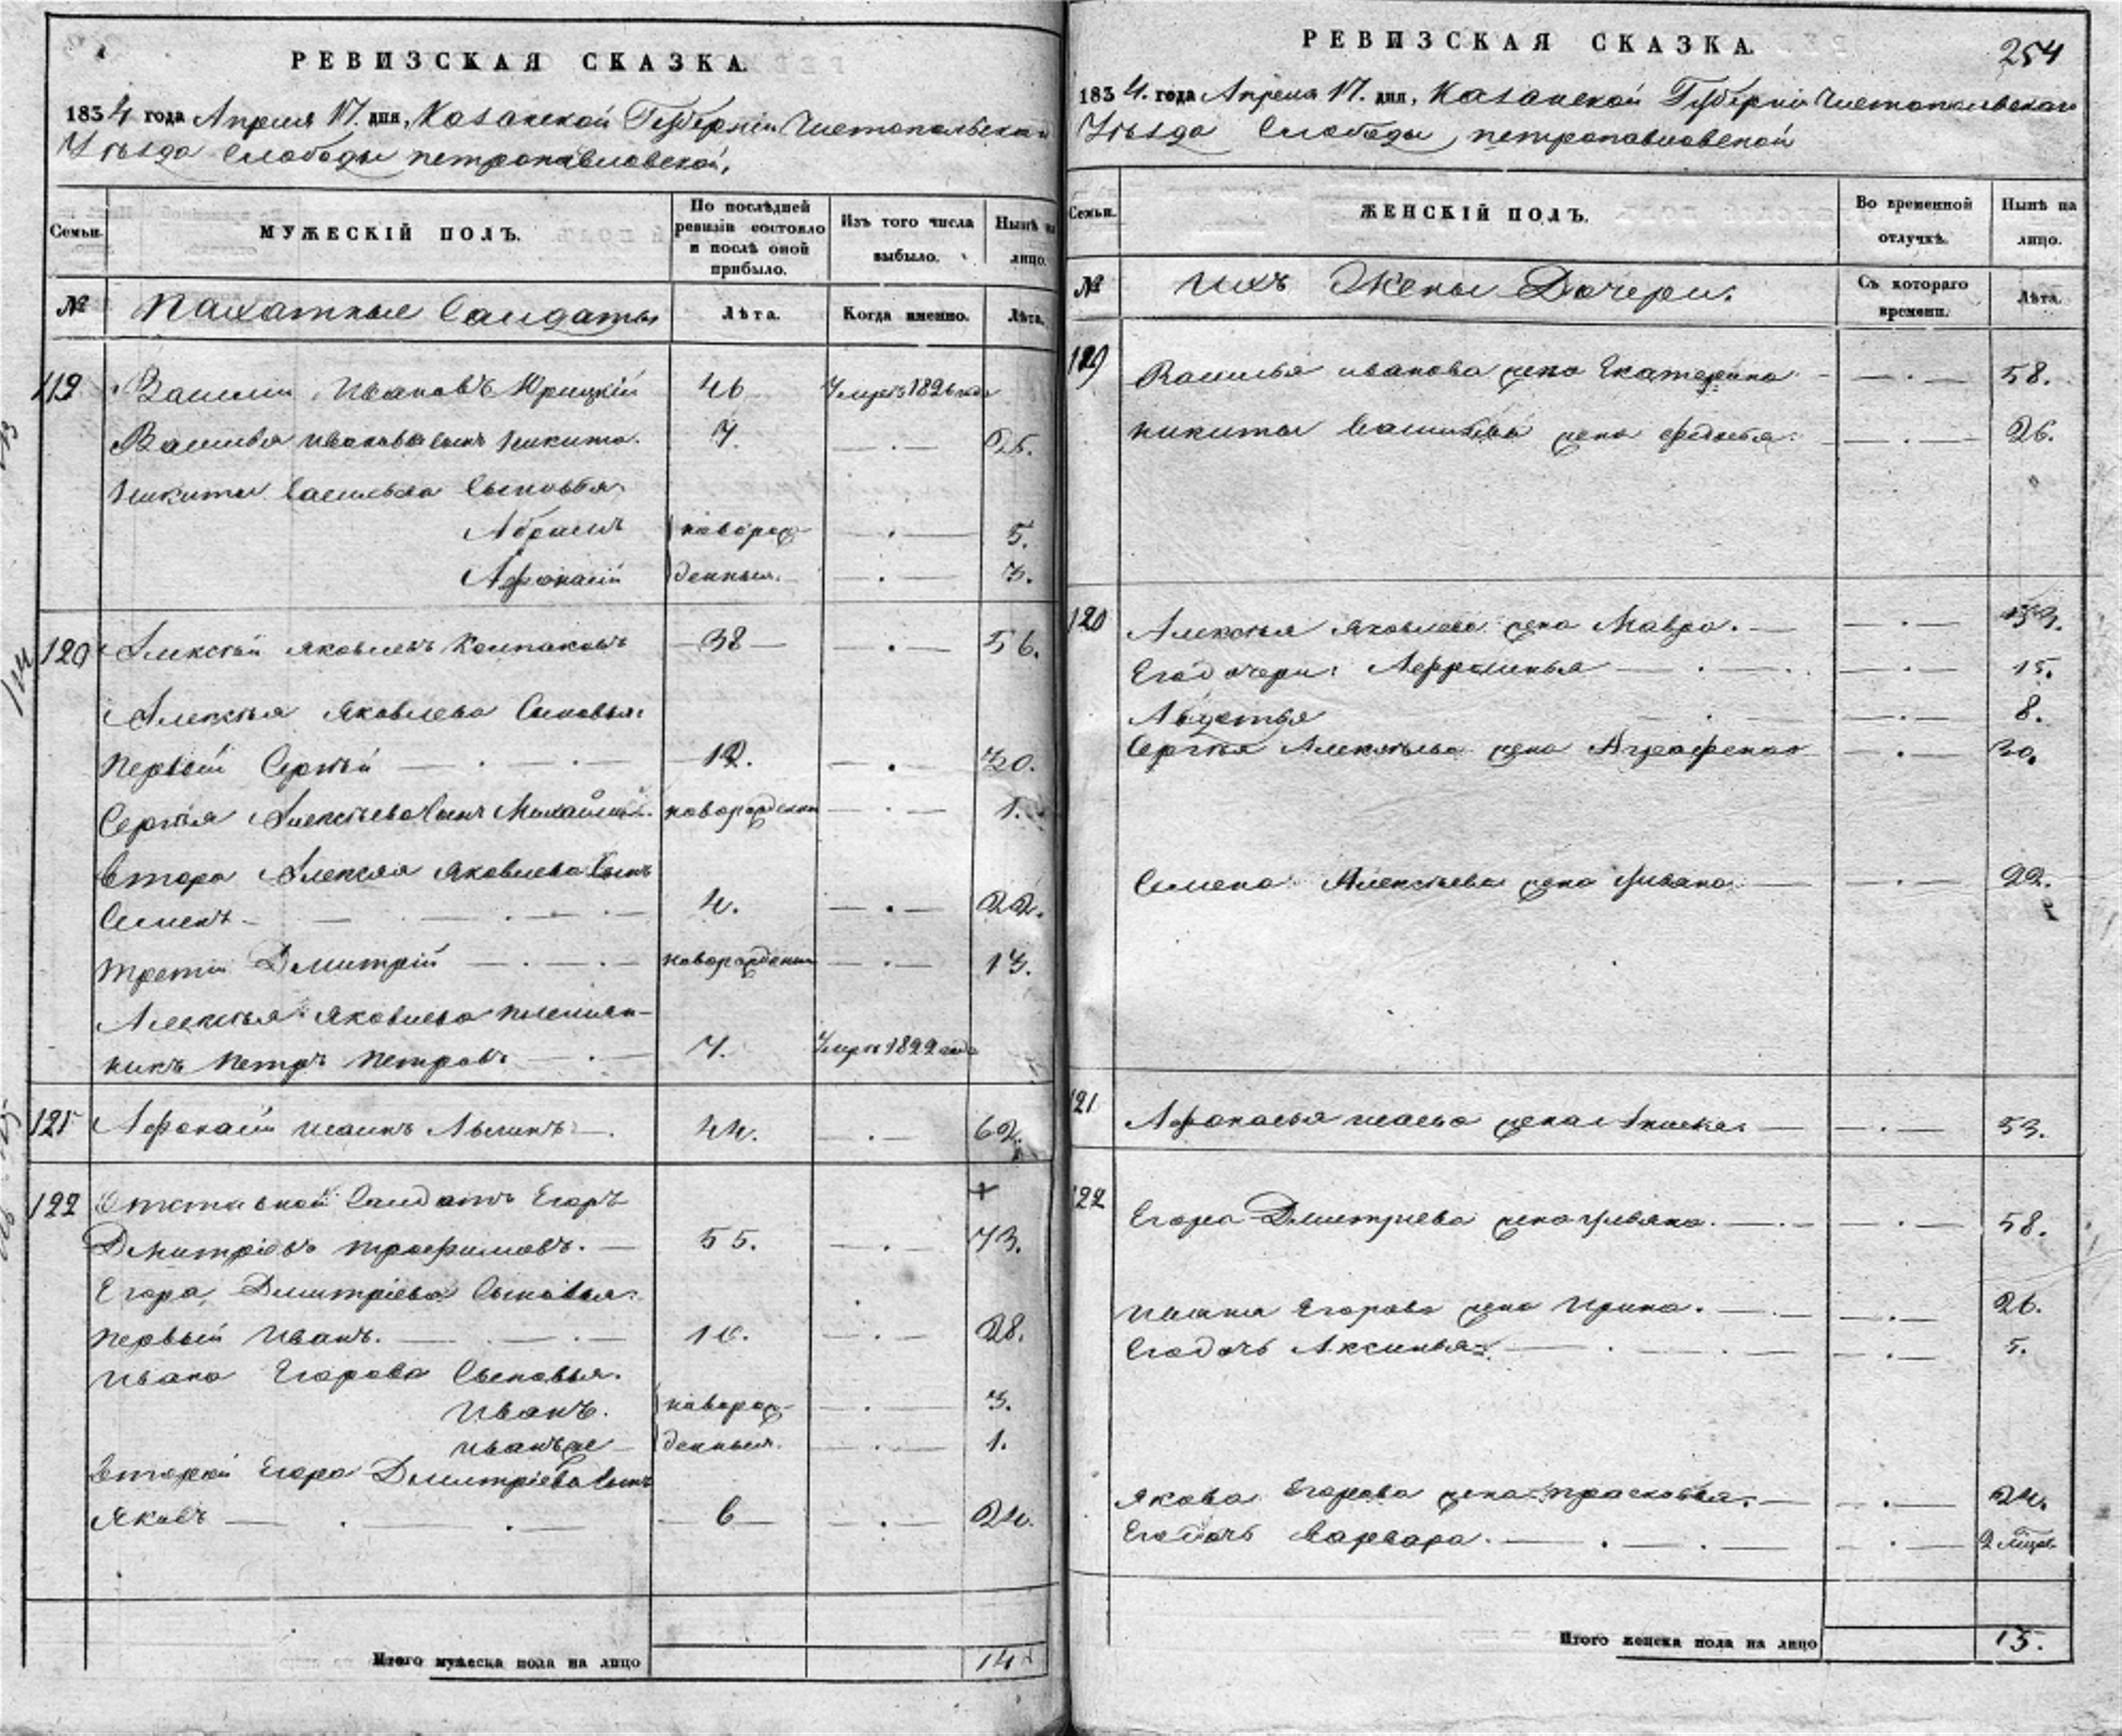 РЕВИЗСКАЯ СКАЗКА.
1834 года Апреля 17. дня, Казанской Губерніи Чистопольскаго
Уѣзда Слободы петропавловской,
Семьи.
МУЖЕСКІЙ ПОЛЪ.
По послѣдней ревизіи состояло и послѣ оной прибыло.
Изъ того числа выбыло.
Нынѣ на лицо.
№
Пахатные Солдаты
Лѣта.
Когда именно.
Лѣта.
119 Василій Ивановъ 46 Умре въ 1826 годе
Василья Иванова сынъ Никита. 7. — . — 25.
Никиты Васильева Сыновья
Абрамъ новорож- — . — 5.
Афонасій денныя. — . — 3.
120 Алексѣй Яковлевъ Колпаковъ 38 — . — 56.
Алексѣя Яковлева Сыновья:
первый Сергѣй — . — . — 12. — . — 30.
Сергѣя Алексѣева сынъ Михайла новорожденны — . — 1.
втора Алексѣя Яковлева Сынъ
Семенъ — . — . — 4. — . — 22.
третій Дмитрій — . — . — новорожденны — . — 13.
Алексѣя Яковлева племян-
никъ Петръ Петровъ — . — 7. Умре въ 1822 годе
121 Афонасій 44. — . — 62.
122 Отставной Солдатъ Егоръ
Дмитріевъ трофимовъ. — 55. — . — 73.
Егора Дмитріева Сыновья:
первый Иванъ. — . — 10. — . — 28.
Ивана Егорова Сыновья.
Иванъ. новорож- — . — 3.
Иванъ же денныя. — . — 1.
вторый Егора Дмитріева сынъ
Яковъ — . — . — 6 — . — 24.
Итого мужеска пола на лицо 14
РЕВИЗСКАЯ СКАЗКА.
254
1834. года Апреля 17. дня, Казанской Губерніи Чистопольскаго
Уѣзда Слободы петропавловской
Семьи.
ЖЕНСКІЙ ПОЛЪ.
Во временной отлучкѣ.
Нынѣ на лицо.
№
Ихъ Жены Дочери.
Съ котораго времени.
Лѣта.
119 Василья Иванова жена Екатерина — . — 58.
Никиты Васильева жена Федосья. — . — 26.
120 Алексѣя Яковлева жена Мавра. — — . — 53.
Его дочери: Аффросинья — . — . — . — 15.
Авдотья . — . — 8.
Сергѣя Алексѣева жена Аграфена — . — 30.
Семена Алексѣева жена Ульяна — — . — 22.
121 Афонасья жена Анисья. — — . — 53.
122 Егора Дмитріева жена Ульяна. — . — — . — 58.
Ивана Егорова жена Ирина. — . — — . — 26.
Его дочь Аксинья — . — . — — . — 5.
Якова Егорова жена Прасковья. — — . — 24.
Его дочь Варвара. — . — . — — . — 2
Итого женска пола на лицо 13.